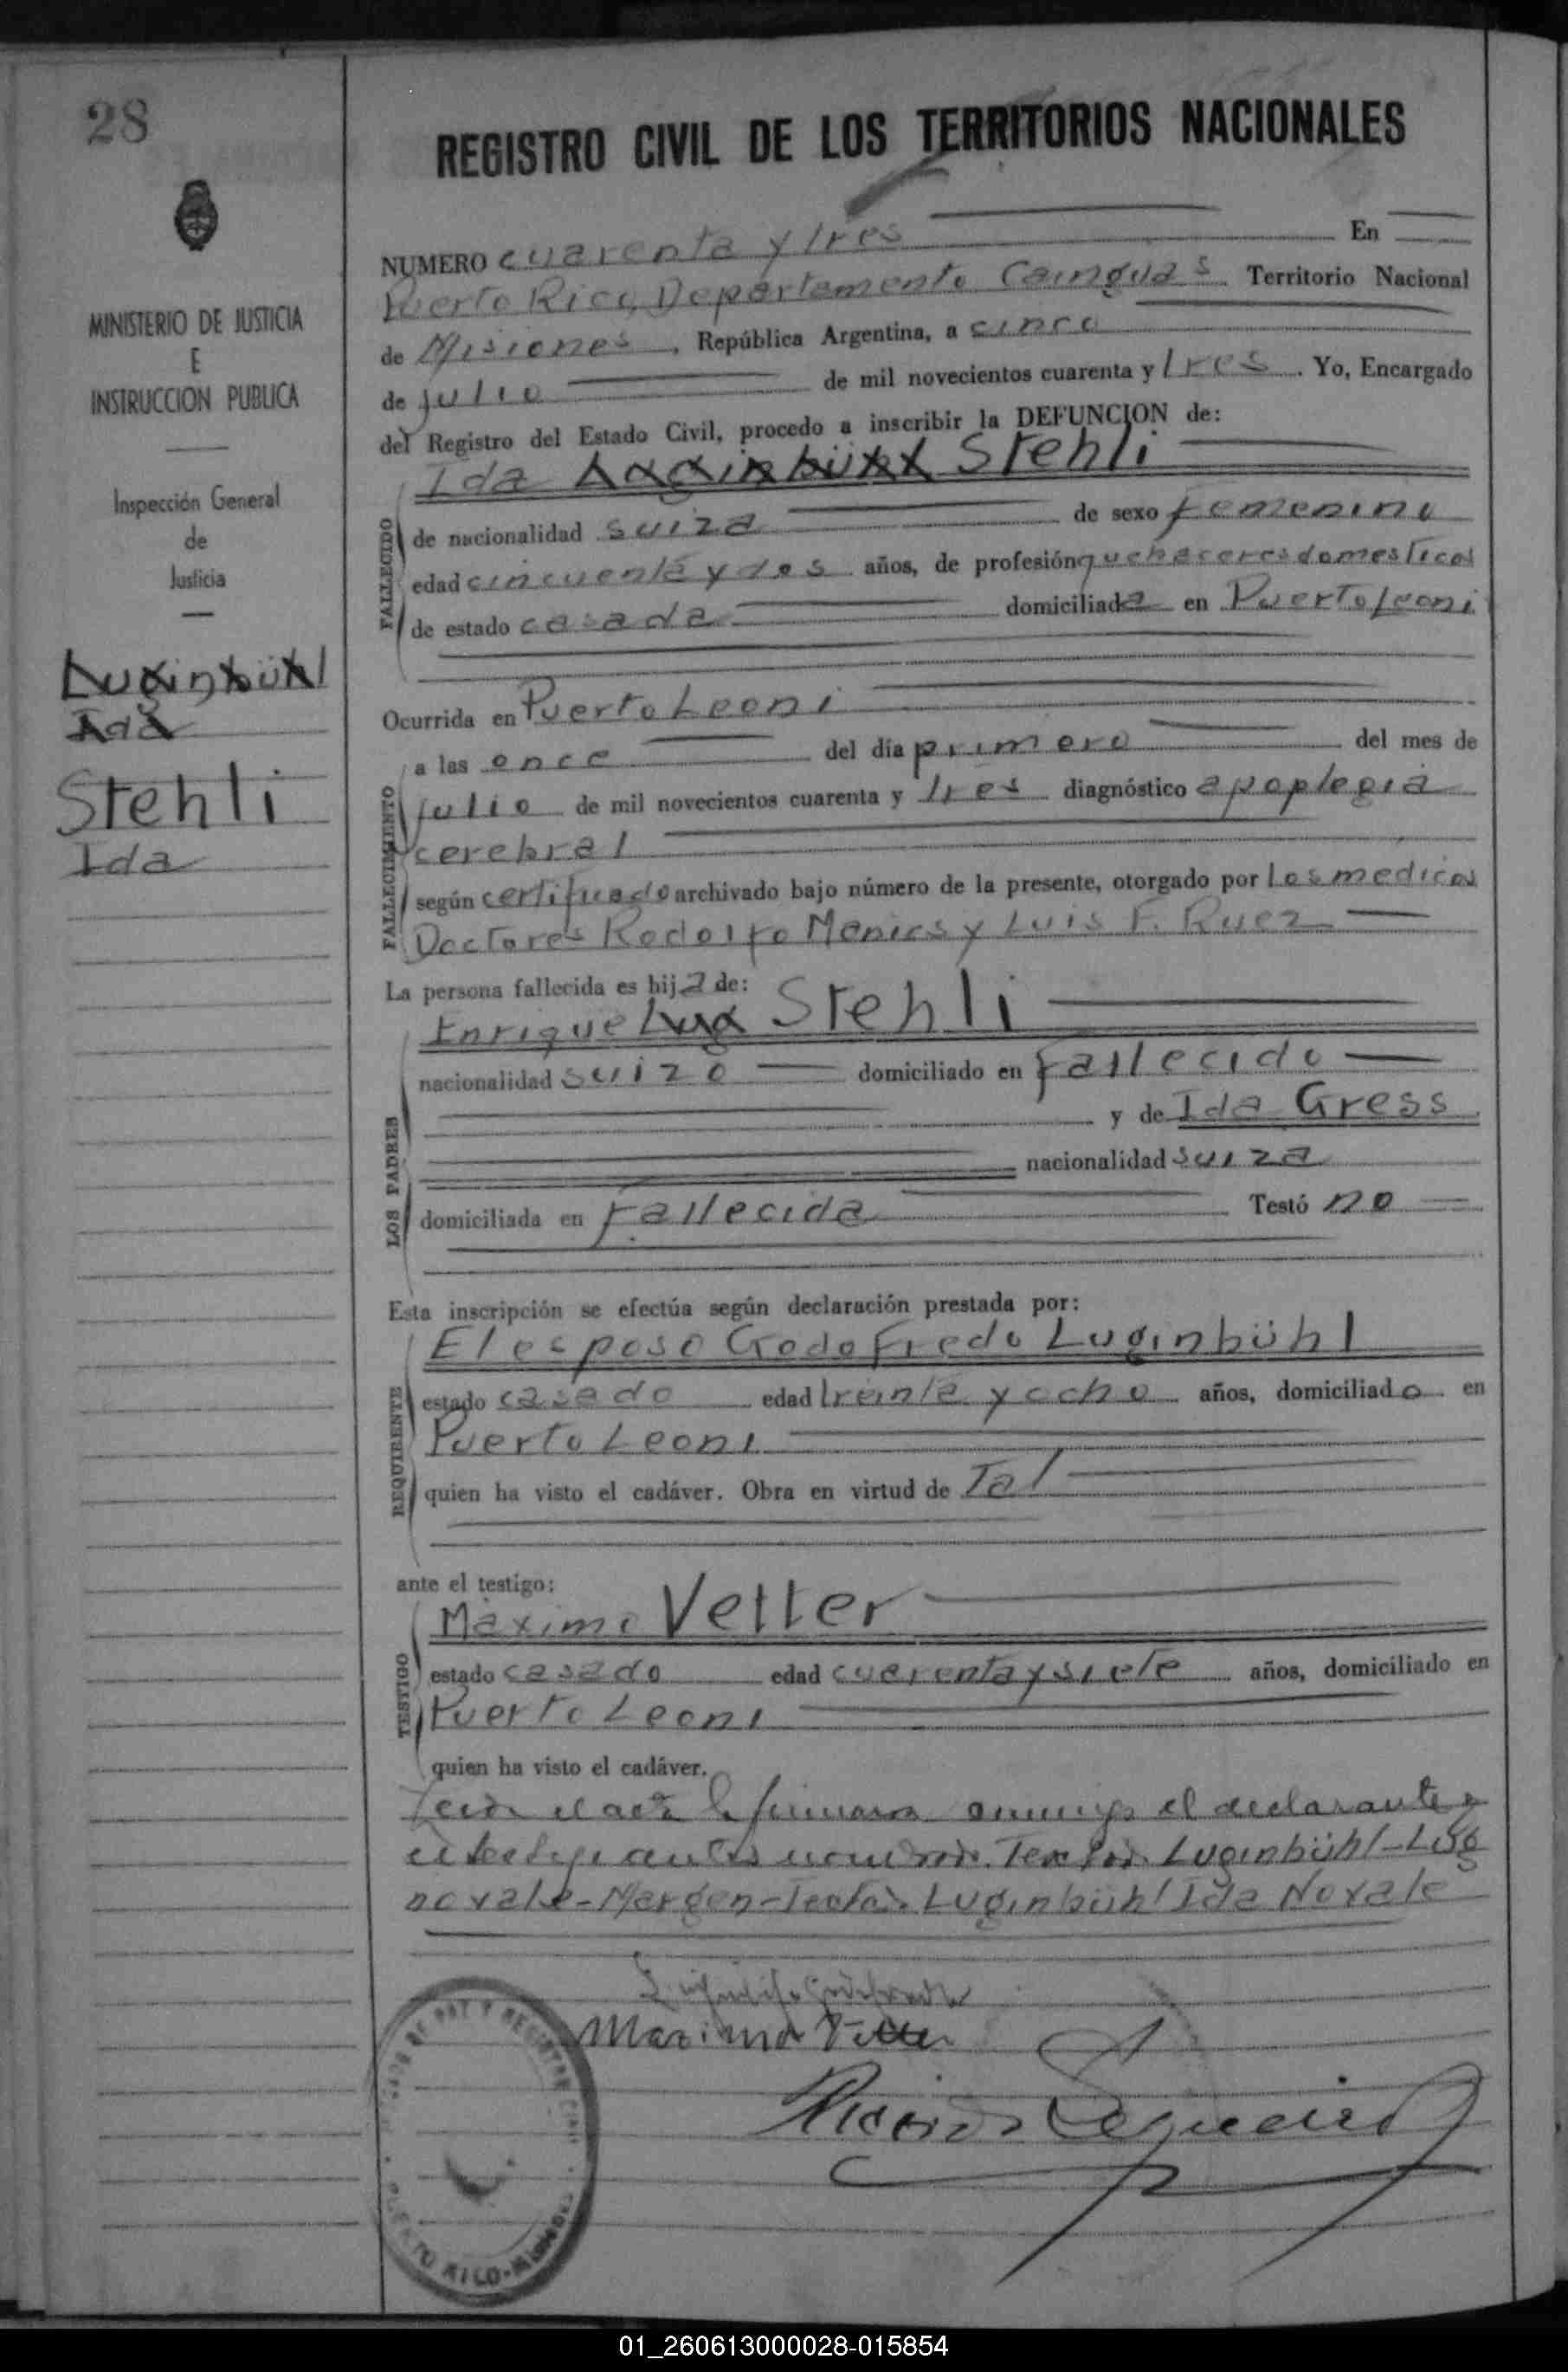 28
REGISTRO CIVIL DE LOS TERRITORIOS NACIONALES
MINISTERIO DE JUSTICIA
E
INSTRUCCION PUBLICA
Inspección General
de
Justicia
Luginbühl
Ida
Stehli
Ida
NUMERO cuarenta y tres En
Puerto Rico, Departamento Cainguas Territorio Nacional
de Misiones, República Argentina, a cinco
de julio de mil novecientos cuarenta y tres. Yo, Encargado
del Registro del Estado Civil, procedo a inscribir la DEFUNCION de:
Ida Luginbühl Stehli
FALLECIDO
de nacionalidad suiza de sexo femenino
edad cincuenta y dos años, de profesión quehaceres domesticos
de estado casada domiciliada en Puerto Leoni
Ocurrida en Puerto Leoni
FALLECIMIENTO
a las once del día primero del mes de
julio de mil novecientos cuarenta y tres diagnóstico apoplegia
cerebral
según certificado archivado bajo número de la presente, otorgado por los medicos
Doctores Rodolfo y Luis F. Ruez
La persona fallecida es hija de:
Enrique Lug Stehli
LOS PADRES
nacionalidad suizo domiciliado en fallecido
y de Ida Gress
nacionalidad suiza
domiciliada en fallecida Testó no
Esta inscripción se efectúa según declaración prestada por:
El esposo Godofredo Luginbühl
REQUIRENTE
estado casado edad treinta y ocho años, domiciliado en
Puerto Leoni
quien ha visto el cadáver. Obra en virtud de Tal
ante el testigo:
Máximo Vetter
TESTIGO
estado casado edad cuarenta y siete años, domiciliado en
Puerto Leoni
quien ha visto el cadáver.
el acta la conmigo el declarante y
el testigo antes Luginbühl-Lug
no vale-Margen-Testado Luginbühl Ida No vale
Maximo Vetter
PUERTO RICO-MISIONES
01_260613000028-015854